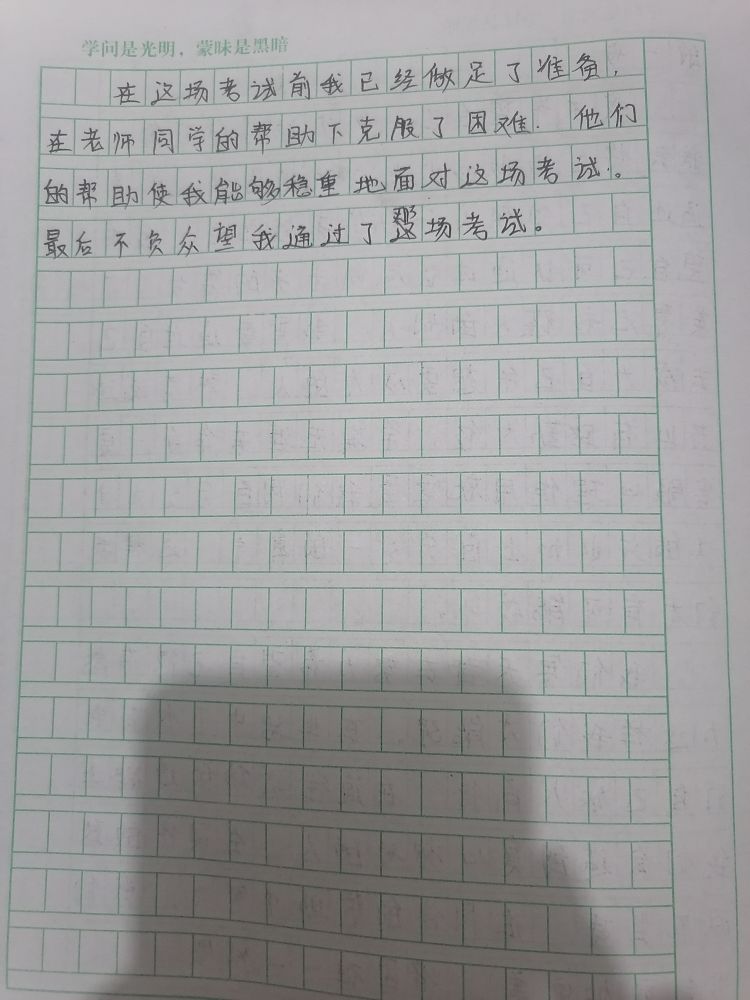 学问是光明，蒙昧是黑暗
在这场考试前我已经做足了准备，
在老师同学的帮助下克服了困难．他们
的帮助使我能够稳重地面对这场考试．。
最后不负众望我通过了那场考试。